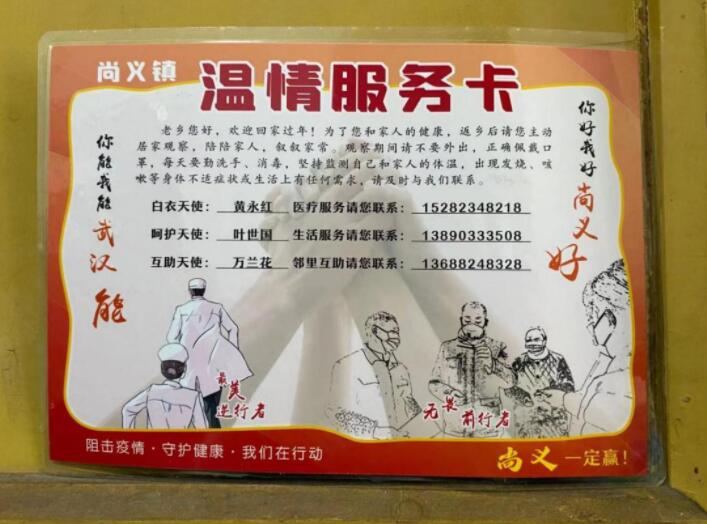 尚义镇 温情服务卡
你能我能武汉能
老乡您好,欢迎回家过年!为了您和家人的健康,返乡后请您主动
居家观察,陪陪家人,叙叙家常。观察期间请不要外出,正确佩戴口
罩,每天要勤洗手、消毒,坚持监测自己和家人的体温,出现发烧、咳
嗽等身体不适症状或生活上有任何需求,请及时与我们联系。
白衣天使: 黄永红 医疗服务请您联系: 15282348218
呵护天使: 叶世国 生活服务请您联系: 13890333508
互助天使: 万兰花 邻里互助请您联系: 13688248328
你好我好尚义好
最美逆行者
无畏前行者
阻击疫情·守护健康·我们在行动
尚义一定赢!